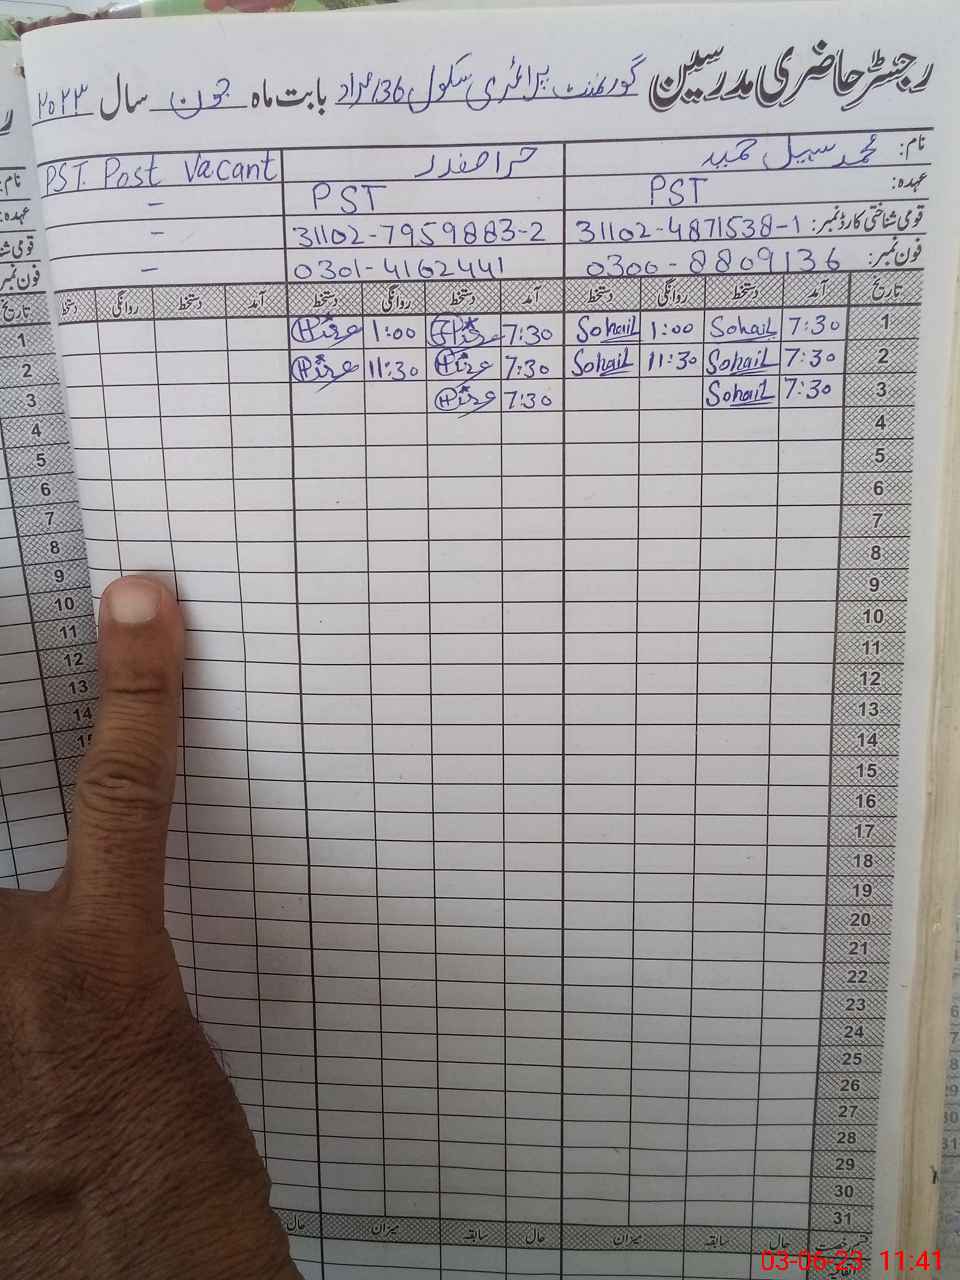 رجسٹر حاضری مدرسین گورنمنٹ پرائمری سکول 136/مراد بابت ماہ جون سال ۲۰۲۳
نام: محمد سہیل حمید حرا صفدر PST. Post Vacant
عہدہ: PST PST -
قومی شناختی کارڈ نمبر: 31102-4871538-1 31102-7959883-2 -
فون نمبر: 0300-8809136 0301-4162441 -
تاریخ آمد دستخط روانگی دستخط آمد دستخط روانگی دستخط آمد دستخط روانگی دستخط
1 7:30 Sohail 1:00 Sohail 7:30 1:00
2 7:30 Sohail 11:30 Sohail 7:30 11:30
3 7:30 Sohail 7:30
4
5
6
7
8
9
10
11
12
13
14
15
16
17
18
19
20
21
22
23
24
25
26
27
28
29
30
31
حال سابقہ میزان حال سابقہ میزان حال
03-06-23 11:41